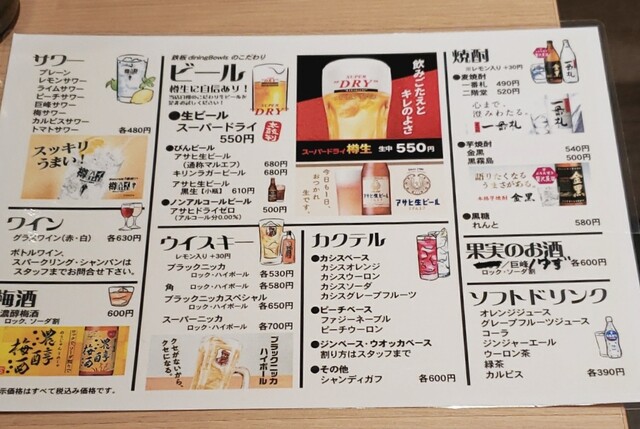 サワー
プレーン
レモンサワー
ライムサワー
ピーチサワー
巨峰サワー
梅サワー
カルピスサワー
トマトサワー
各480円
スッキリ
うまい!
樽ハイ
ワイン
グラスワイン(赤・白) 各630円
ボトルワイン、
スパークリング・シャンパンは
スタッフまでお問合せ下さい。
梅酒
濃醇梅酒
ロック、ソーダ割 600円
濃醇梅酒
示価格はすべて税込み価格です。
鉄板 diningBowls のこだわり
ビール
樽生に自信あり!
●生ビール
スーパードライ
550円
●びんビール
アサヒ生ビール 680円
(通称マルエフ)
キリンラガービール 680円
アサヒ生ビール
黒生【小瓶】 610円
●ノンアルコールビール
アサヒドライゼロ 500円
(アルコール分0.00%)
SUPER
"DRY"
飲みごたえと
キレのよさ
スーパードライ 樽生 生中 550円
今日も1日、
おつかれ
生です。
アサヒ生ビール
ウイスキー
レモン入り +30円
ブラックニッカ
ロック・ハイボール 各530円
角
ロック・ハイボール 各580円
ブラックニッカスペシャル
ロック・ハイボール 各650円
スーパーニッカ
ロック・ハイボール 各700円
クセがないから、
クセになる。
ブラックニッカ
ハイボール
カクテル
●カシスベース
カシスオレンジ
カシスウーロン
カシスソーダ
カシスグレープフルーツ
●ピーチベース
ファジーネーブル
ピーチウーロン
●ジンベース・ウオッカベース
割り方はスタッフまで
●その他
シャンディガフ 各600円
焼酎
※レモン入り +30円
●麦焼酎
一番札 490円
二階堂 520円
心まで、
澄みわたる。
一番札
●芋焼酎
金黒 540円
黒霧島 500円
語りたくなる
うまさがある。
本格芋焼酎 金黒
●黒糖
れんと 580円
果実のお酒
/巨峰/ゆず 各600円
ロック・ソーダ割
ソフトドリンク
オレンジジュース
グレープフルーツジュース
コーラ
ジンジャーエール
ウーロン茶
緑茶
カルピス 各390円